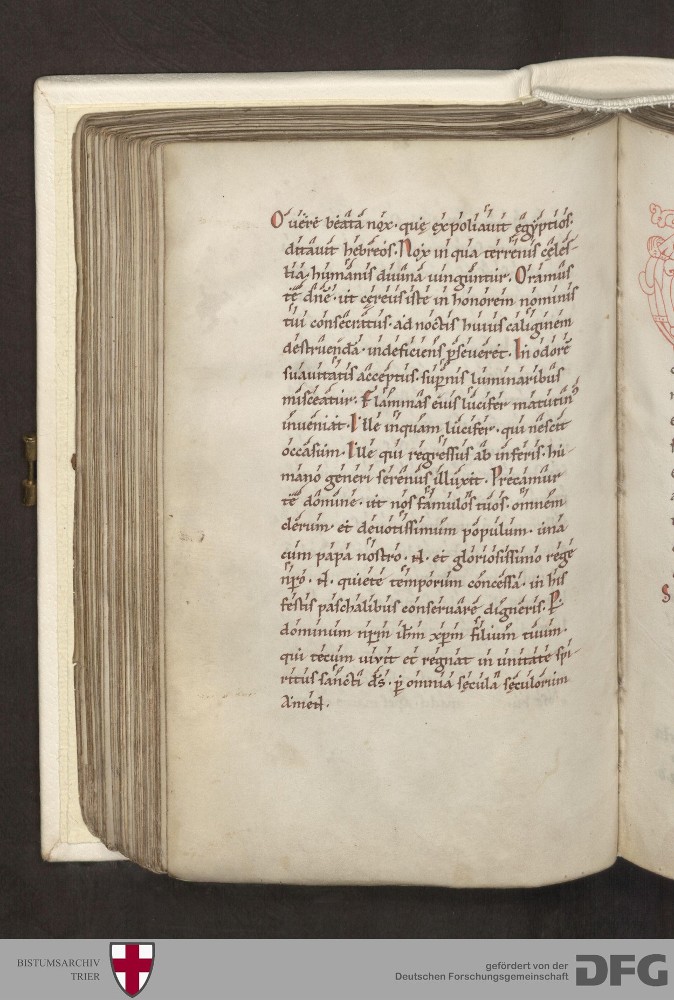 O uere beata nox · quę expoliauit ęgyptios ·
ditauit hebreos · Nox in qua terrenis cęles-
tia · humanis diuina iunguntur · Oramus
te dn̄e · ut cereus iste in honorem nominis
tui consecratus · ad noctis huius caliginem
destruenda · indeficiens ꝑseueret · In odorē
suauitatis acceptus · suꝑnis luminaribus
misceatur · Flammas eius lucifer matutin᷒
inueniat · Ille inquam lucifer · qui nescit
occasum · Ille qui regressus ab inferis · hu
mano generi serenus illuxit · Precamur
te domine · ut nos famulos tuos · omnem
clerum · et deuotissimum populum · una
cum papa nostro · N · et gloriosissimo rege
nr̄o · N · quiete temporum concessa · in his
festis paschalibus conseruare digneris · P̄
dominum nr̄m ih̄m xp̄m filium tuum ·
qui tecum uiuit et regnat in unitate spi
ritus sancti d̄s · ꝑ omnia sęcula sęculorum
Amen ·
S
BISTUMSARCHIV
TRIER
gefördert von der
Deutschen Forschungsgemeinschaft
DFG